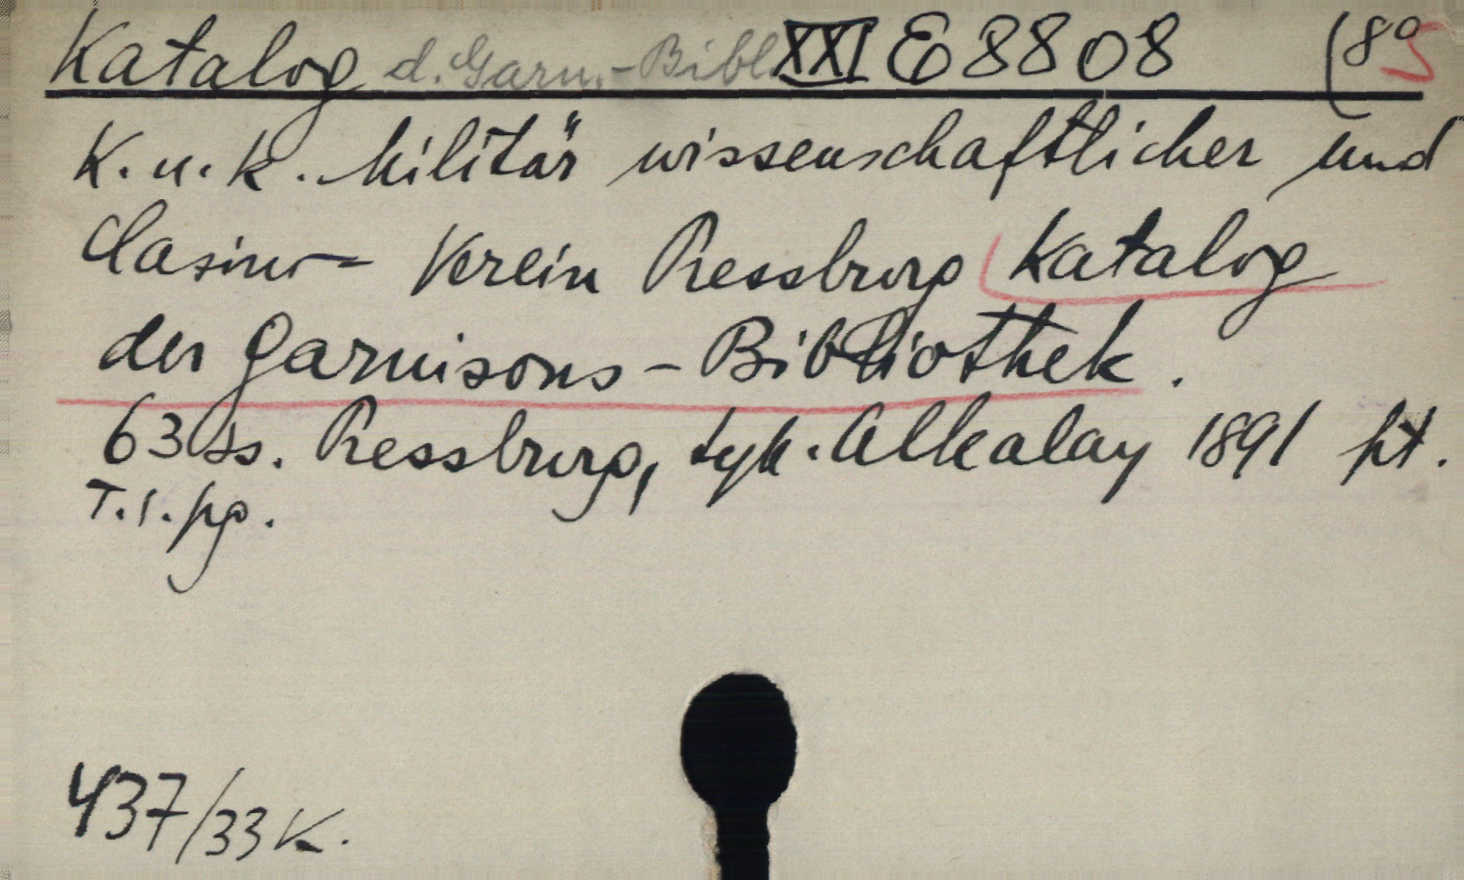 Katalog d. Garn.-Bibl XXI E 8808 (8° S
K. u. k. Militär wissenschaftlicher und
Casino- Verein Pressburg Katalog
der Garnisons-Bibliothek.
63 ss. Pressburg, typ. Alkalay 1891 kt.
T. 1. pg.
437/33 K.